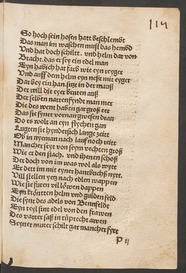 114
So hoch sein hosen hatt beschlembt
Das man im waschen must das hembd
Und hat doch schiltt vnd helm dar von
Bracht das er sey ein edel man
Eyn habich hat farb wie eyn reyger
Und auff dem helm eyn nest mit eyger
Dar bey ein han sitzt in der muß
Der will die eyer brüten auß
Der selben narren fyndt man mer
Die des wenen haben gar groß eer
Das sie fyntt vornan gewesen dran
Do es wolt an ein fliehen gan
Lugten sie hynderlich lange zeitt
Ob in yeman nach lauff noch weit
Mancher seyt von seym vechten groß
Wie er den stach vnd ihenen schoß
Der doch von im was wol als wytt
Er dett im mit eyner hantbüchß nytt
Vill stellen yetz nach edlen wappen
Wie sie füren vil löwen dappen
Eyn krönten helm vnd gulden feld
Die synt des adels von Bennfeldt
Eyn teyl sint edel von den frawen
Des vatter saß in ruprecht awen
Seyner mutter schilt gar mancher fyrt
P ij